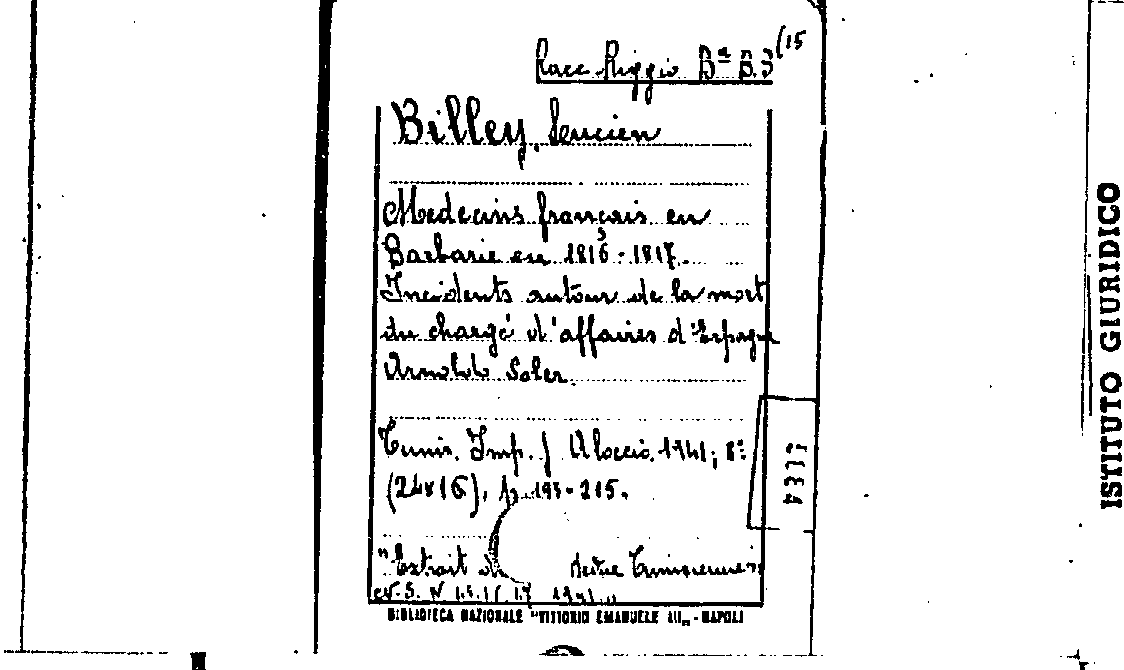 Racc. Riggio Bª B.3 (15
Billey, Lucien
Medecins français en
Barbarie en 1816-1817.
Incidents autour de la mort
du chargé d'affaires d'Espagne
Arnoldo Soler.
Tunis. Imp. J. Aloccio. 1941; 8º
(24x16), p. 193-215.
"Extrait de Revue Tunisienne
N.S. N 1941"
BIBLIOTECA NAZIONALE "VITTORIO EMANUELE III„ - NAPOLI
ISTITUTO GIURIDICO